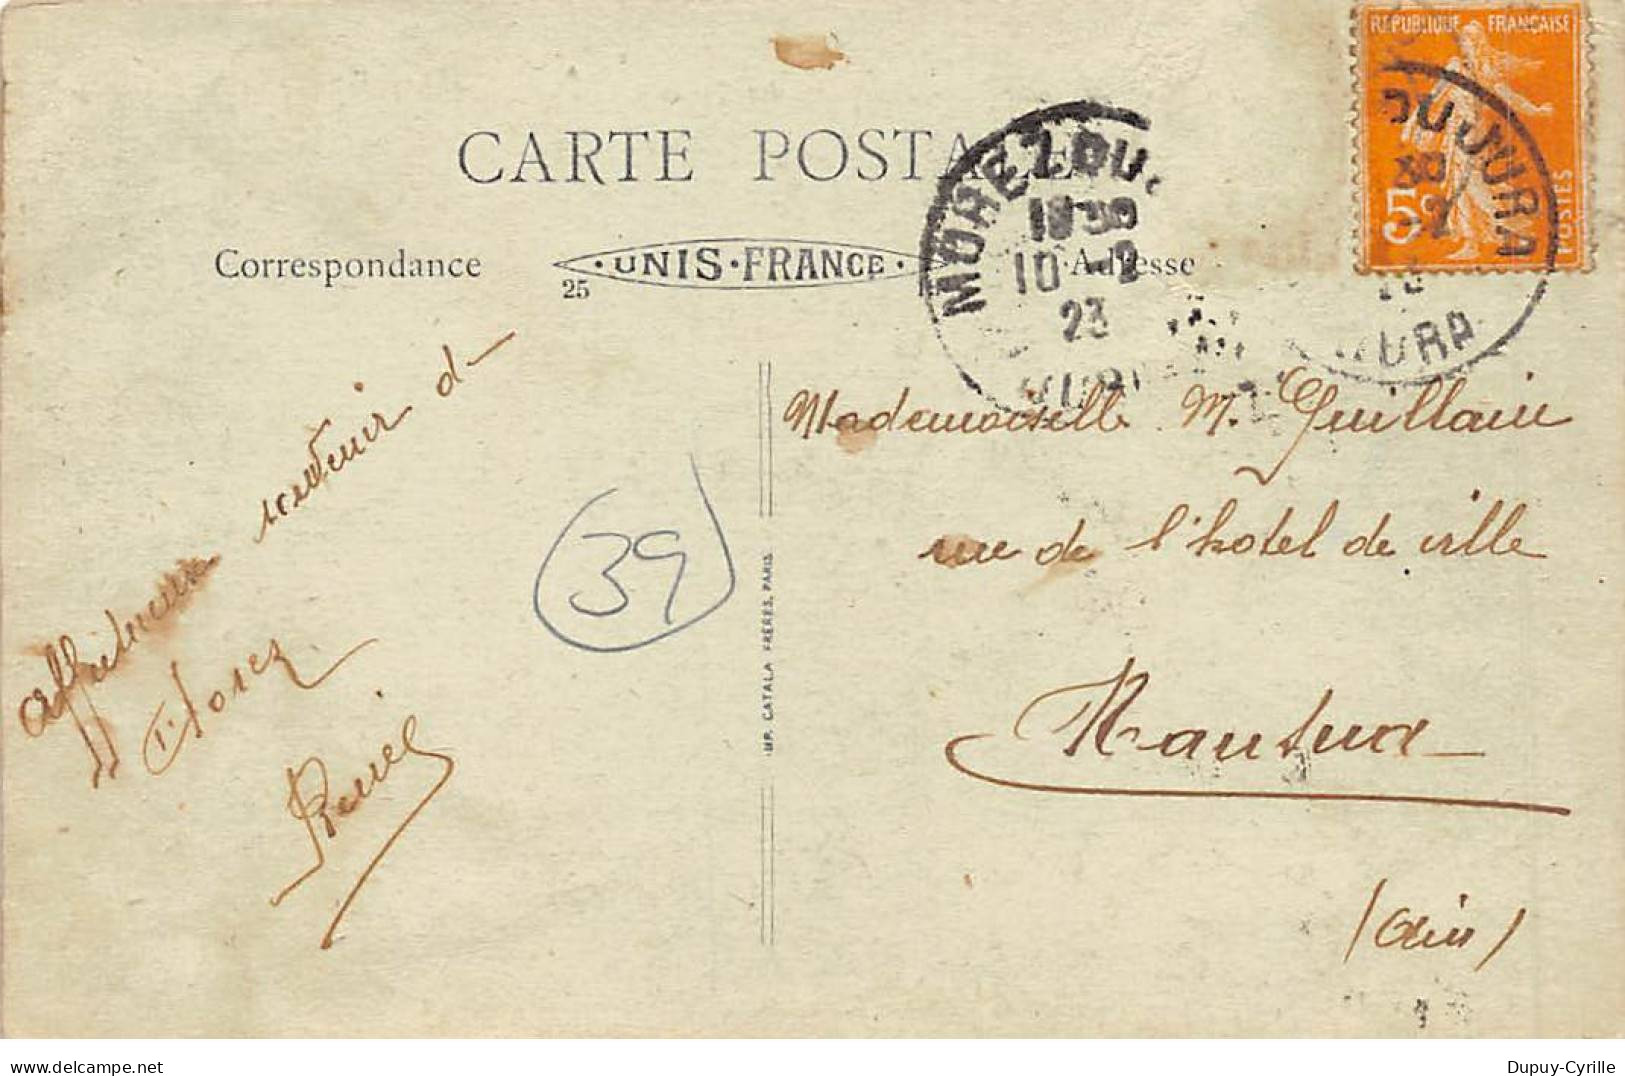 REPUBLIQUE FRANÇAISE
5c
POSTES
DU JURA
CARTE POSTALE
MOREZ DU
18 30
10 - 2
23
JURA
Correspondance
UNIS·FRANCE
25
Adresse
affectueux souvenir de
Morez
Renée
39
IMP. CATALA FRERES, PARIS
Mademoiselle M. Guillain
rue de l'hotel de ville
Nantua
(Ain)
delcampe.net
Dupuy-Cyrille